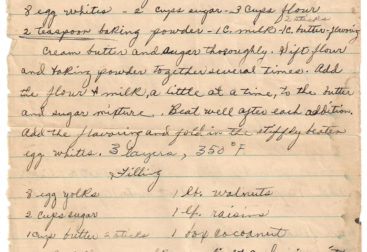 8 egg whites - 2 cups sugar - 3 cups flour
2 sticks
2 teaspoon baking powder - 1 C. milk - 1 C. butter - flavoring
Cream butter and sugar thoroughly. Sift flour
and baking powder together several times. Add
the flour & milk, a little at a time, to the butter
and sugar mixture. Beat well after each addition.
Add the flavoring and fold in the stiffly beaten
egg whites. 3 layers, 350° F
Filling
8 egg yolks 1 lb. walnuts
2 cups sugar 1 lb. raisins
1 cup butter 2 sticks 1 box cocoanut